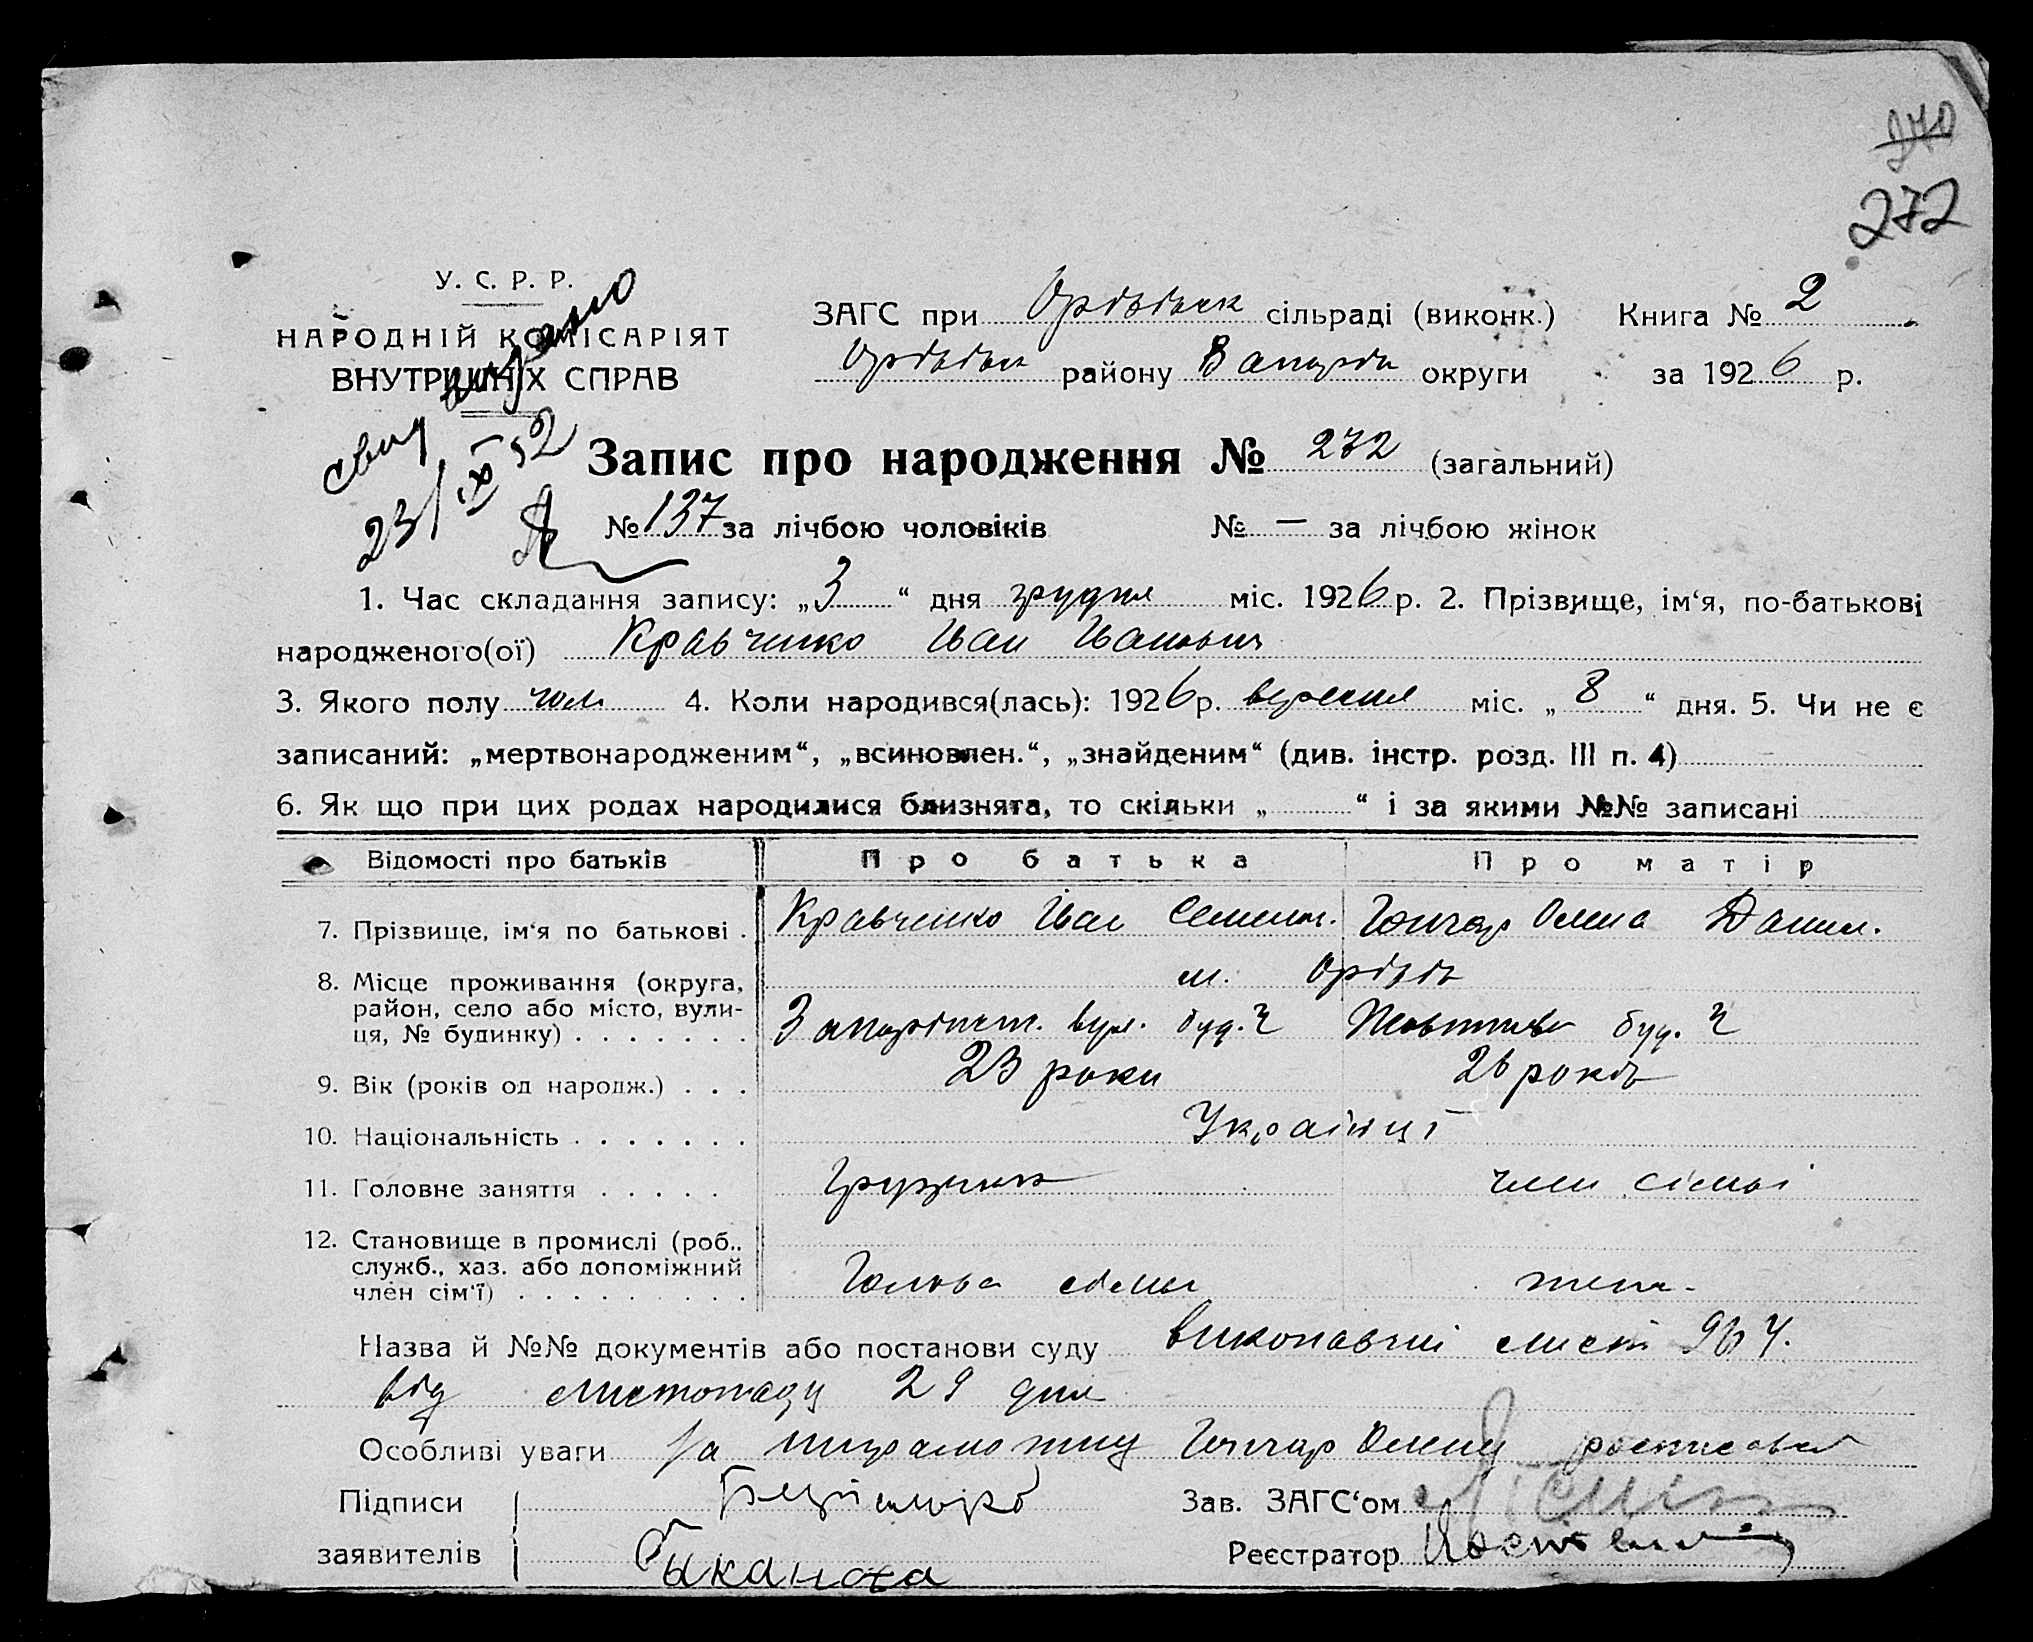 270
272
У. С. Р. Р.
НАРОДНІЙ КОМІСАРІЯТ
ВНУТРІШНІХ СПРАВ
свид видано
23/IX 52
ЗАГС при Оріхівськ сільраді (виконк.) Книга № 2
Оріхівськ району Запоріз округи за 1926 р.
Запис про народження № 272 (загальний)
№ 137 за лічбою чоловіків № — за лічбою жінок
1. Час складання запису: „3“ дня грудня міс. 1926 р. 2. Прізвище, ім‘я, по-батькові
народженого(ої) Кравченко Іван Іванович
3. Якого полу чол. 4. Коли народився(лась): 1926 р. вересня міс. „8“ дня. 5. Чи не є
записаний: „мертвонародженим“, „всиновлен.“, „знайденим“ (див. інстр. розд. III п. 4)
6. Як що при цих родах народилися близнята, то скільки „ “ і за якими №№ записані
Відомості про батьків Про батька Про матір
7. Прізвище, ім‘я по батькові . Кравченко Іван Семенов. Гончар Олена Данил.
8. Місце проживання (округа, м. Оріхів
район, село або місто, вули-
ця, № будинку) . . . . . . . Запорізьк. вул. буд. Жовтнева буд.
9. Вік (років од народж.) . . . 23 роки 26 років
10. Національність . . . . . . . Українці
11. Головне заняття . . . . . член сімьі
12. Становище в промислі (роб.,
служб., хаз. або допоміжний
член сім‘ї) . . . . . . . . . . Голова сімьи
Назва й №№ документів або постанови суду виконавчий лист
від листопаду 29 дня
Особливі уваги за неграмотну Гончар Олену росписався
Підписи Зав. ЗАГС‘ом
заявителів Реєстратор